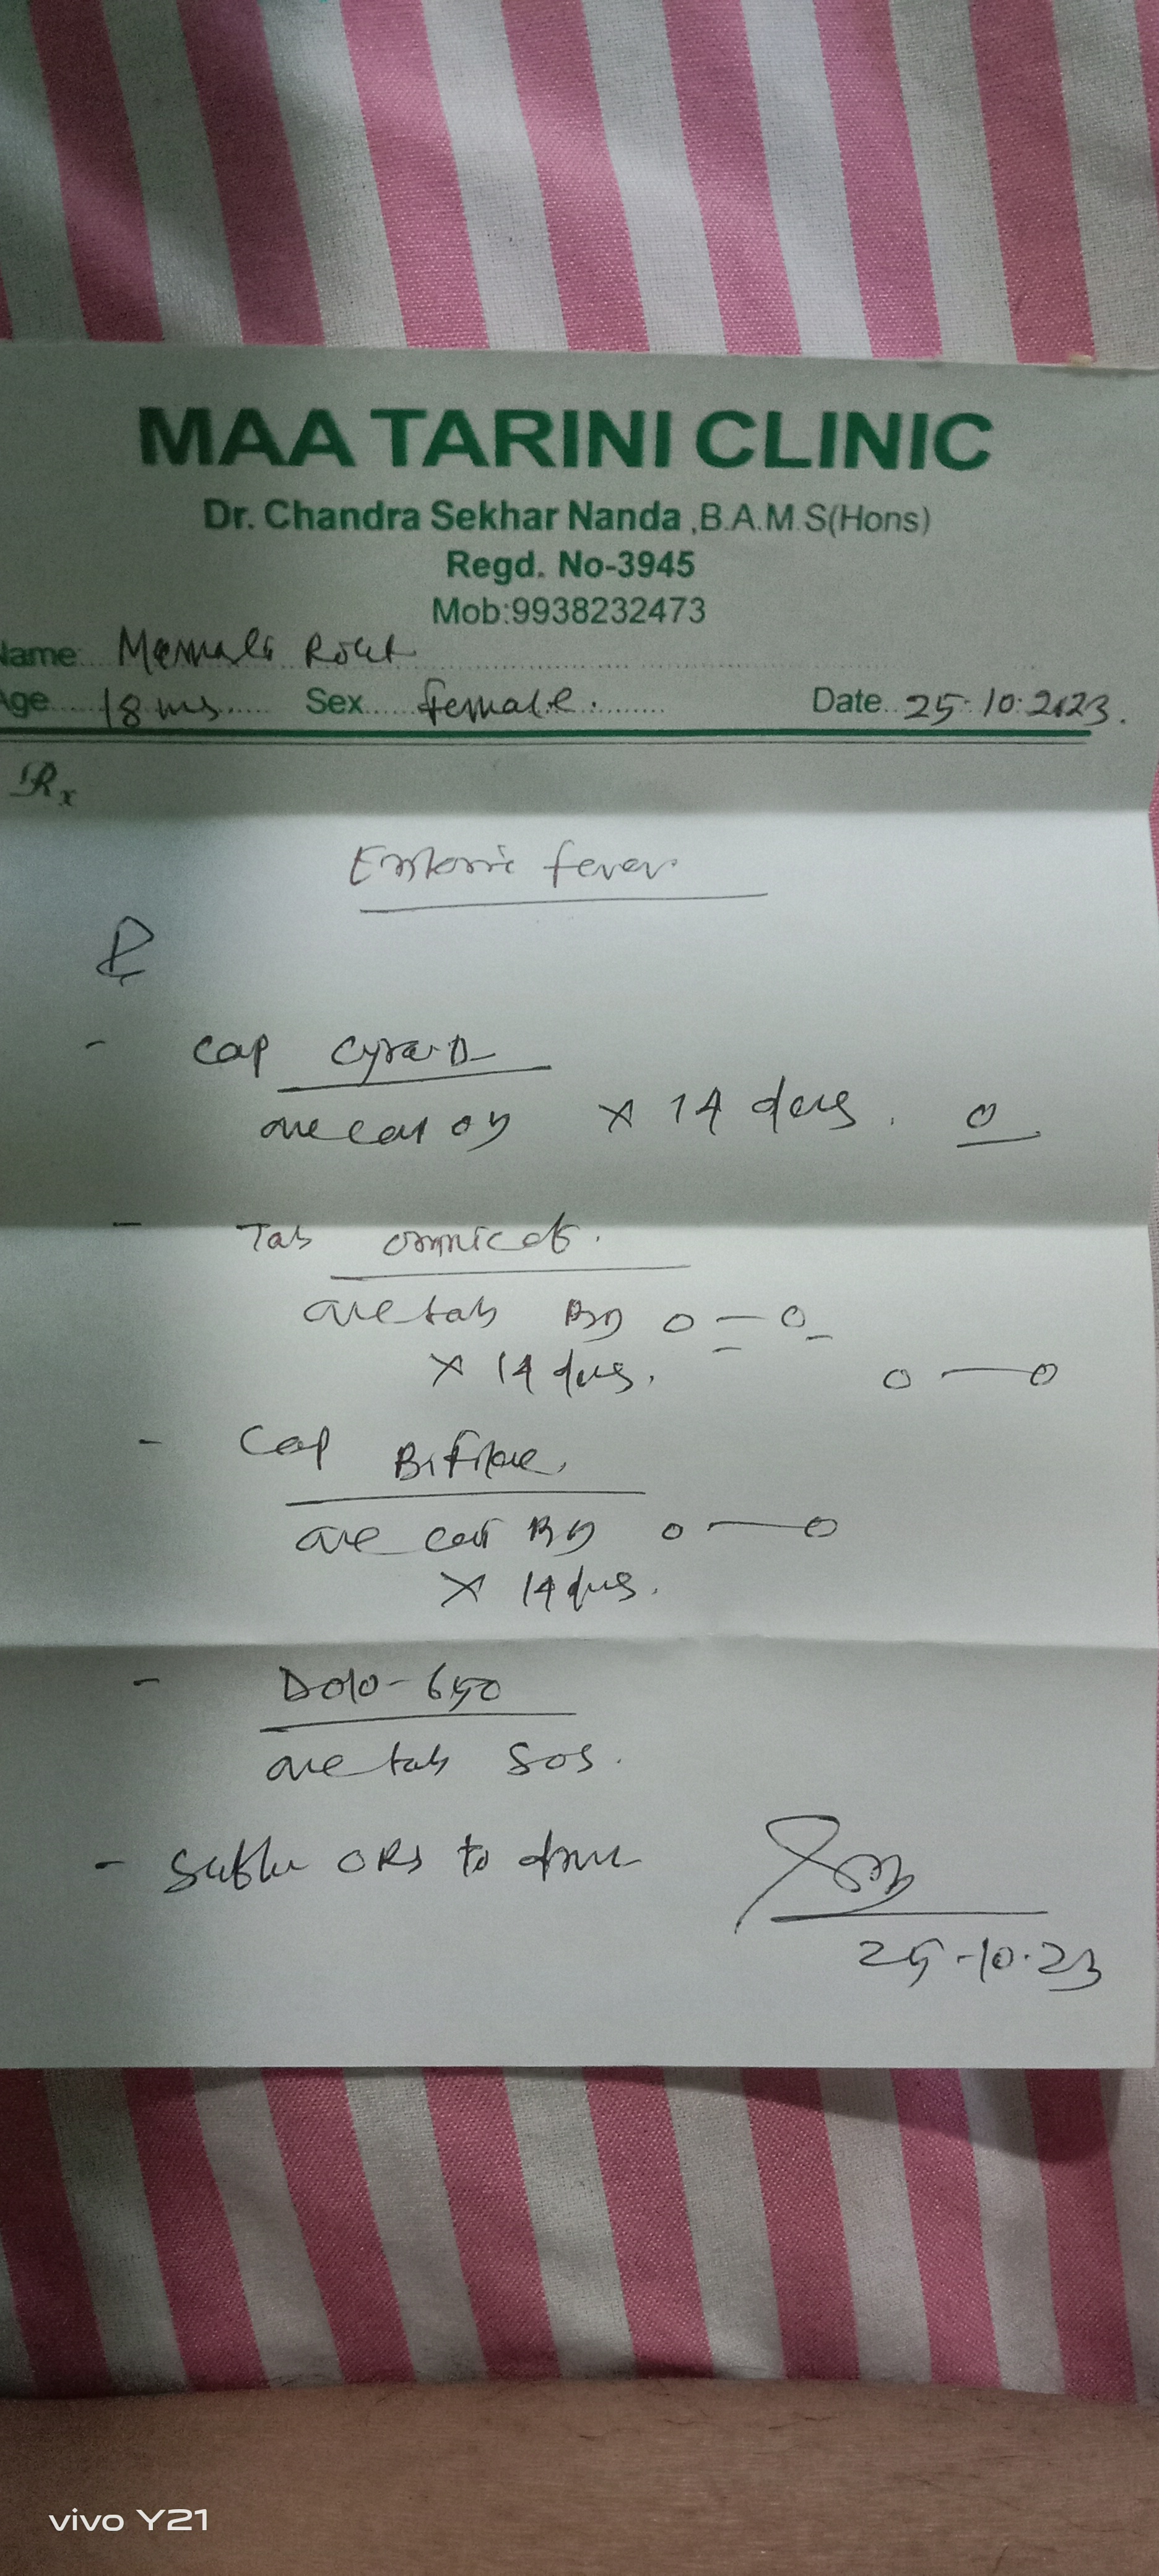 MAA TARINI CLINIC
Dr. Chandra Sekhar Nanda ,B.A.M.S(Hons)
Regd. No-3945
Mob:9938232473
Name Rout
Age 18 Sex female. Date 25.10.2023.
Rx
fever
- Cap Cyra-D
one cap OD × 14 days. 0
- Tab
one tab BD 0 — 0
× 14 days. 0 — 0
- Cap Bifilac
one cap BD 0 — 0
× 14 days.
- Dolo-650
one tab SOS.
- ORS to
25.10.23
vivo Y21